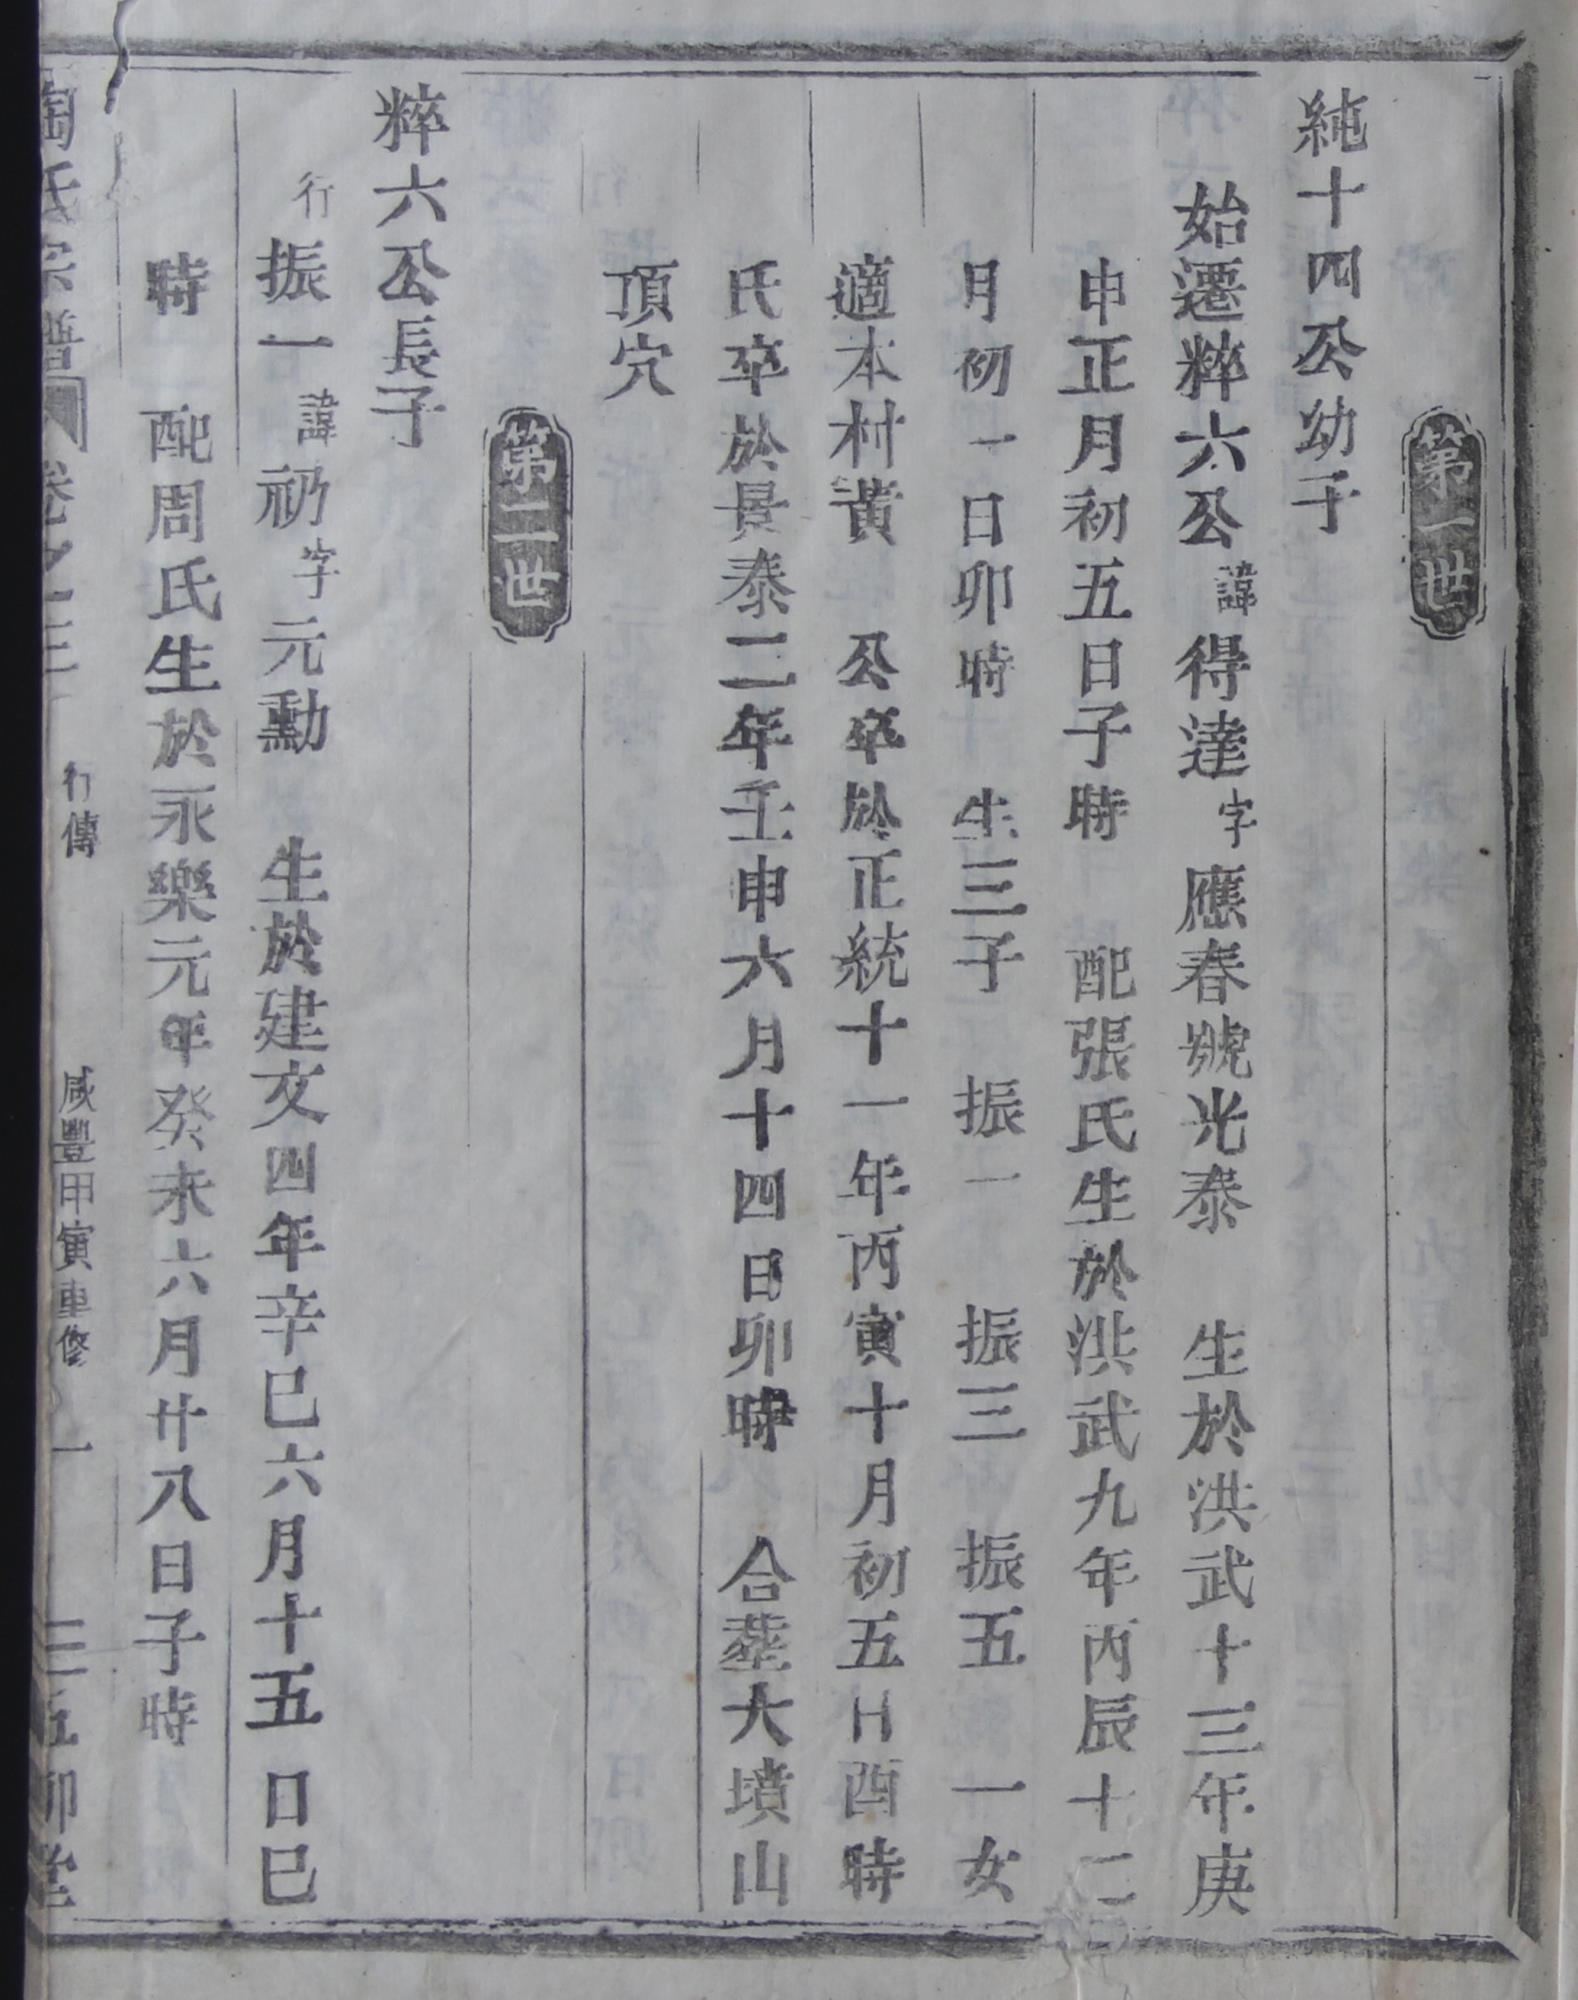 第一世
純十四公幼子
始遷粹六公諱得達字應春號光泰　生於洪武十三年庚
申正月初五日子時　配張氏生於洪武九年丙辰十二
月初一日卯時　生三子　振一　振三　振五　一女
適本村黃　公卒於正統十一年丙寅十月初五日酉時
氏卒於景泰三年壬申六月十四日卯時　合塟大墳山
頂穴
第二世
粹六公長子
行振一諱礽字元勳　生於建文四年辛巳六月十五日巳
時　配周氏生於永樂元年癸未六月廿八日子時
陶氏宗譜　卷之三　行傳　咸豐甲寅重修　一　五柳堂